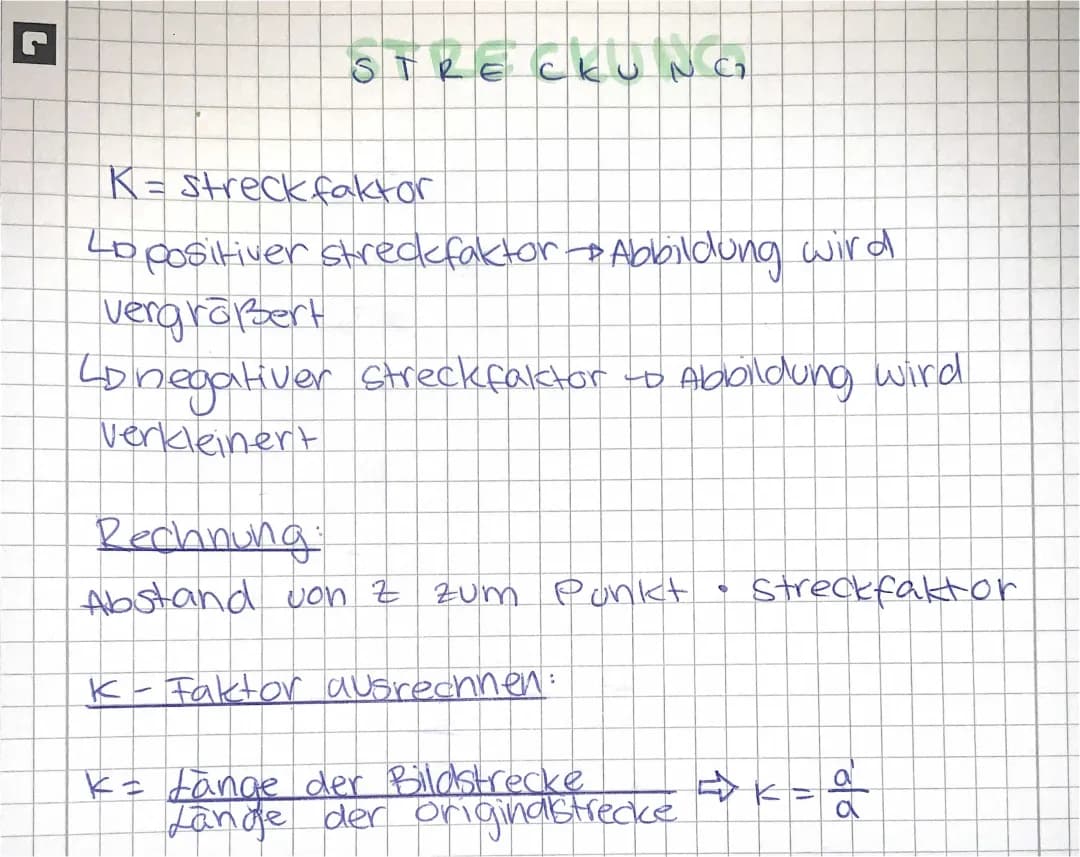 STRECKUNG
K = streckfaktor
↳ positiver streckfaktor → Abbildung wird
vergrößert
↳ negativer streckfaktor → Abbildung wird
verkleinert
Rechnung:
Abstand von Z zum Punkt · streckfaktor
K - Faktor ausrechnen:
K = Länge der Bildstrecke / Länge der Originalstrecke ⇒ K = a'/a